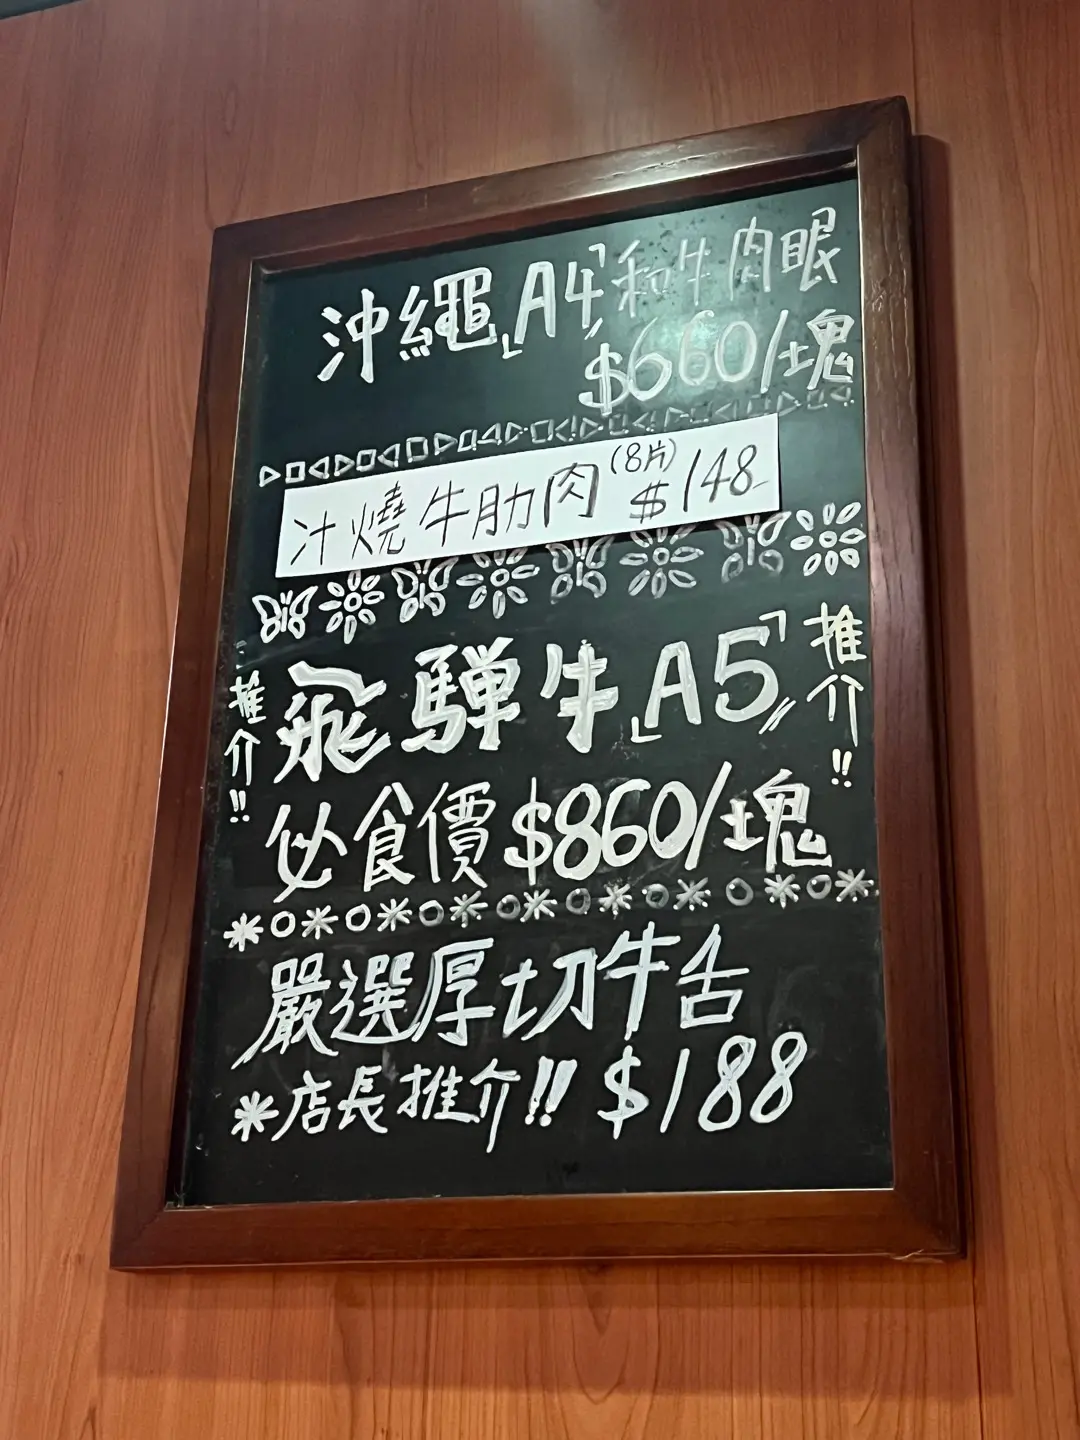 沖繩「A4」和牛肉眼
$660/塊
汁燒牛肋肉(8片) $148
推介!!
飛驒牛「A5」
推介!!
必食價$860/塊
嚴選厚切牛舌
*店長推介!! $188